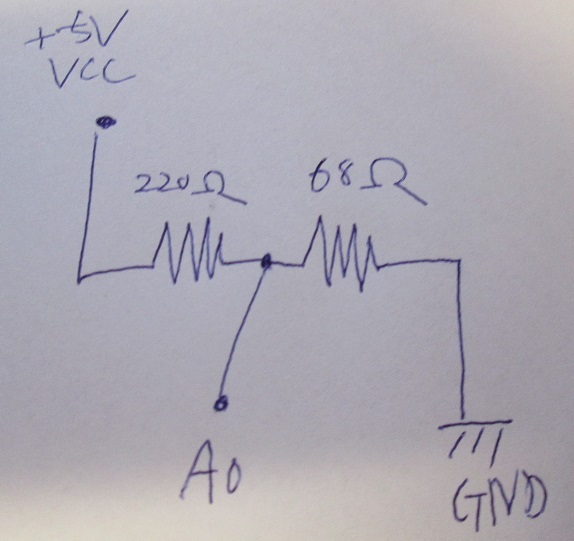 +5V
VCC
220Ω 68Ω
A0
GND